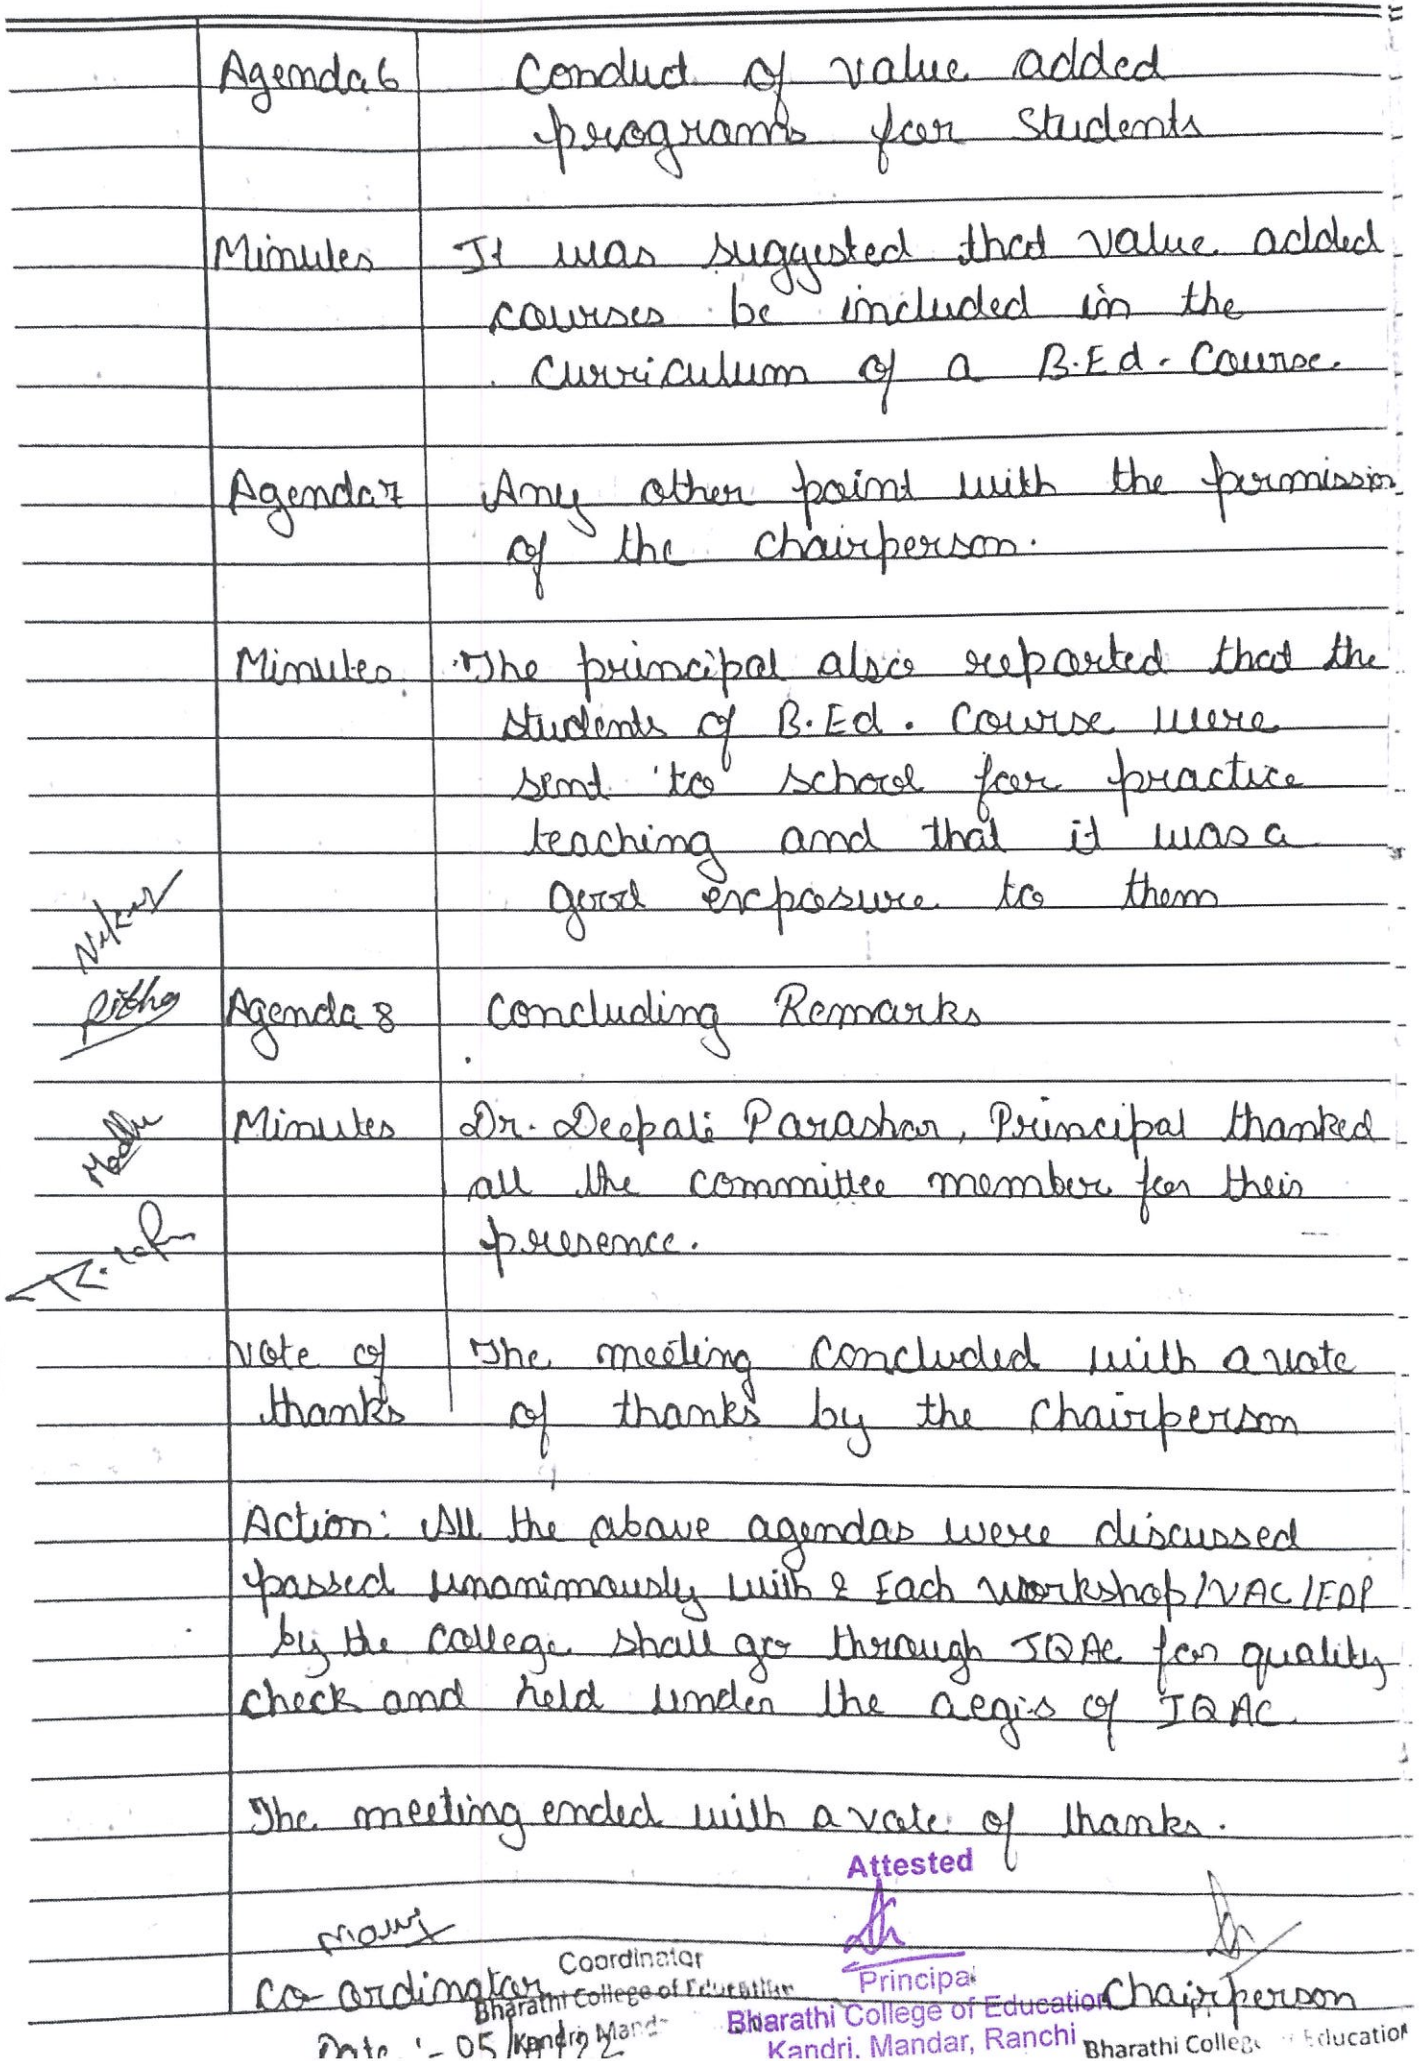 Agenda 6 Conduct of value added
programs for students
Minutes It was suggested that value added
courses be included in the
curriculum of a B.Ed. Course.
Agenda 7 Any other point with the permission
of the chairperson.
Minutes The principal also reported that the
students of B.Ed. Course were
sent to school for practice
teaching and that it was a
good exposure to them
Agenda 8 Concluding Remarks
Madhu
Minutes Dr. Deepali Parashar, Principal thanked
all the committee member for their
presence.
Vote of The meeting concluded with a vote
thanks of thanks by the Chairperson
Action: All the above agendas were discussed
passed unanimously with & Each workshop/VAC/FDP
by the college shall go through IQAC for quality
check and held under the aegis of IQAC
The meeting ended with a vote of thanks.
Attested
Coordinator
Principal
Co-ordinator Bharathi College of Education
Chairperson
Bharathi College of Education
Kandri, Mandar, Ranchi
Bharathi College Education
Date :- 05 Kandri Mand